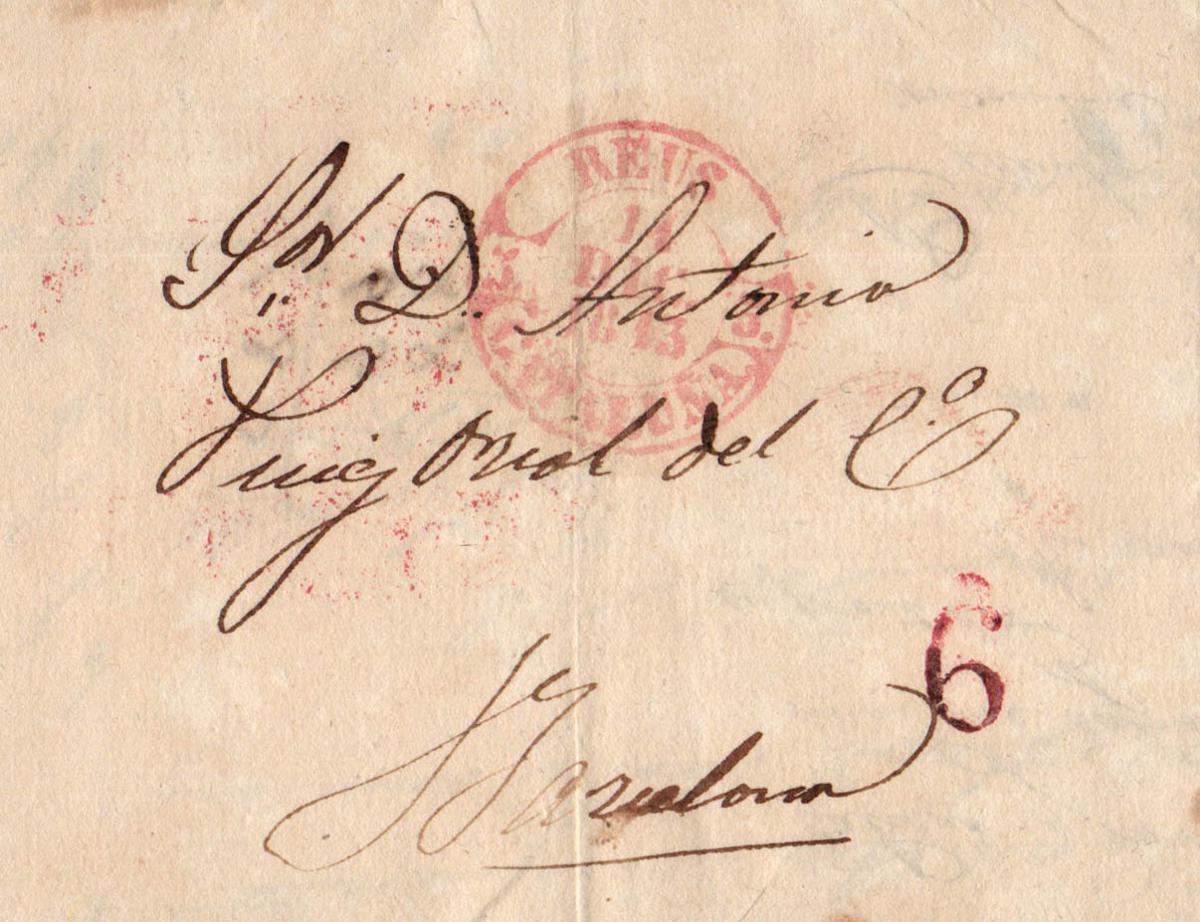 REUS
14
DIC
1843
CATALUÑA B.
Sor. D. Antonio
Puig Oriol del Co.
6
Barcelona